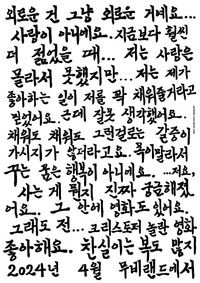 외로운 건 그냥 외로운 거예요...
사랑이 아니에요. 지금보다 훨씬
더 젊었을 때... 저는 사랑은
몰라서 못했지만... 저는 제가
좋아하는 일이 저를 꽉 채워줄거라고
믿었어요. 근데 잘못 생각했어요.
채워도 채워도 그런걸로는 갈증이
가시지가 않더라고요. 목이말라서
꾸는 꿈은 행복이 아니에요. ...저요,
사는 게 뭔지 진짜 궁금해졌
어요.. 그 안에 영화도 있어요.
그래도 전... 크리스토퍼 놀란 영화
좋아해요. 찬실이는 복도 많지
2024년 4월 무비랜드에서